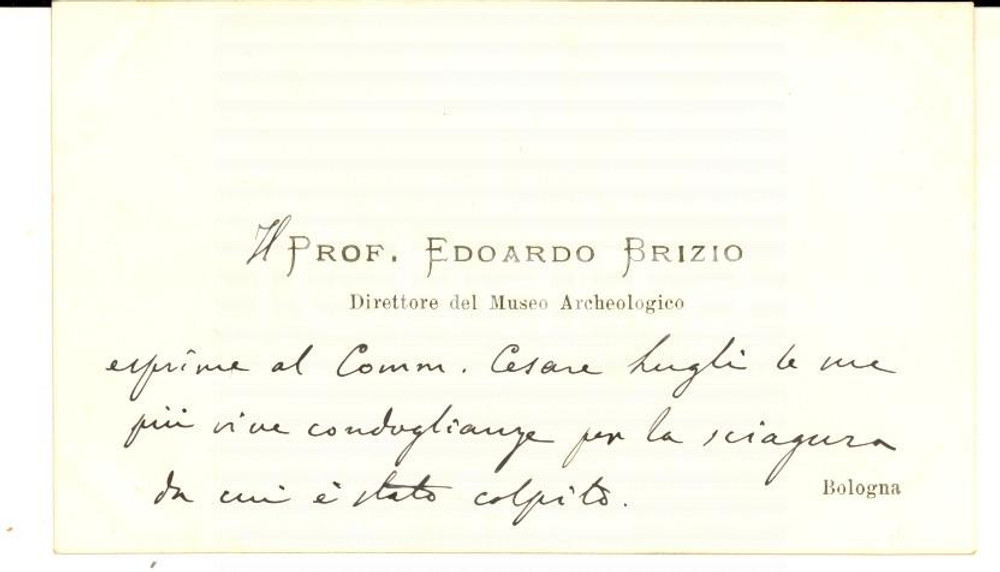 Il PROF. EDOARDO BRIZIO
Direttore del Museo Archeologico
esprime al Comm. Cesare Lugli le sue
più vive condoglianze per la sciagura
da cui è stato colpito.
Bologna